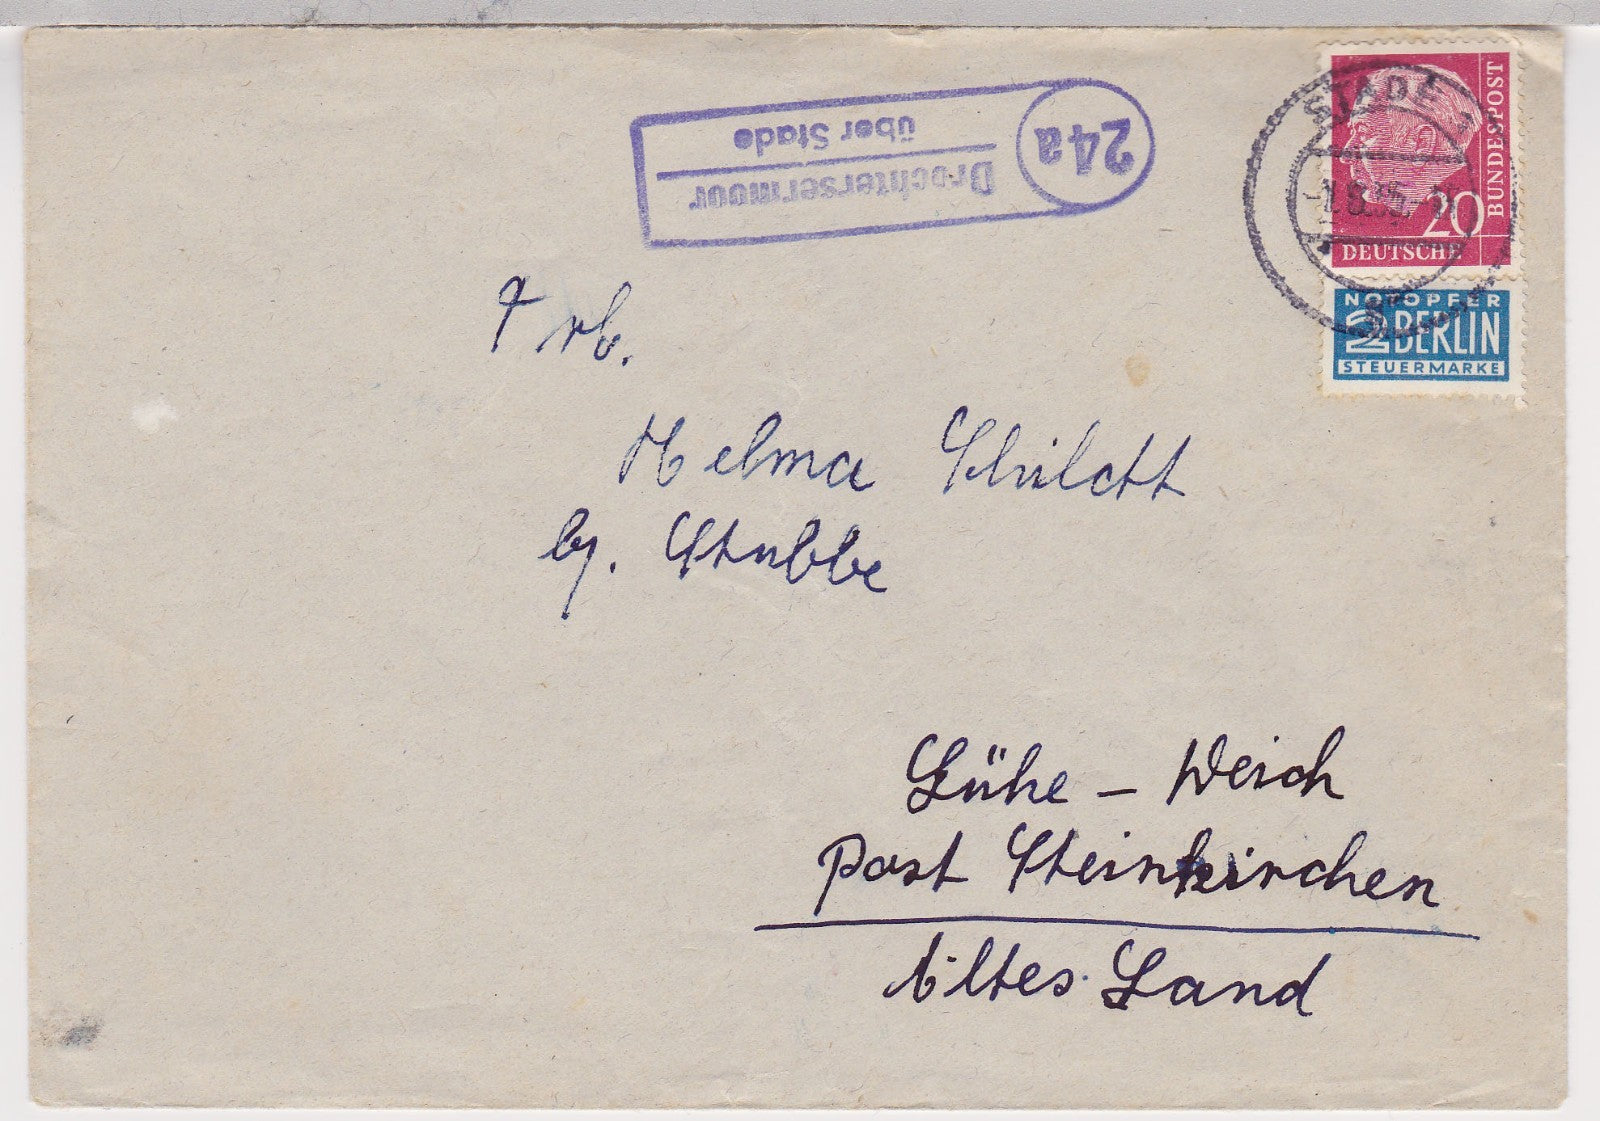 24a
Drochtersermoor
über Stade
STADE
20
DEUTSCHE
BUNDESPOST
NOTOPFER
2 BERLIN
STEUERMARKE
Frl.
Helma Schildt
bz. Stubbe
Lühe - Weich
Post Steinkirchen
Altes Land